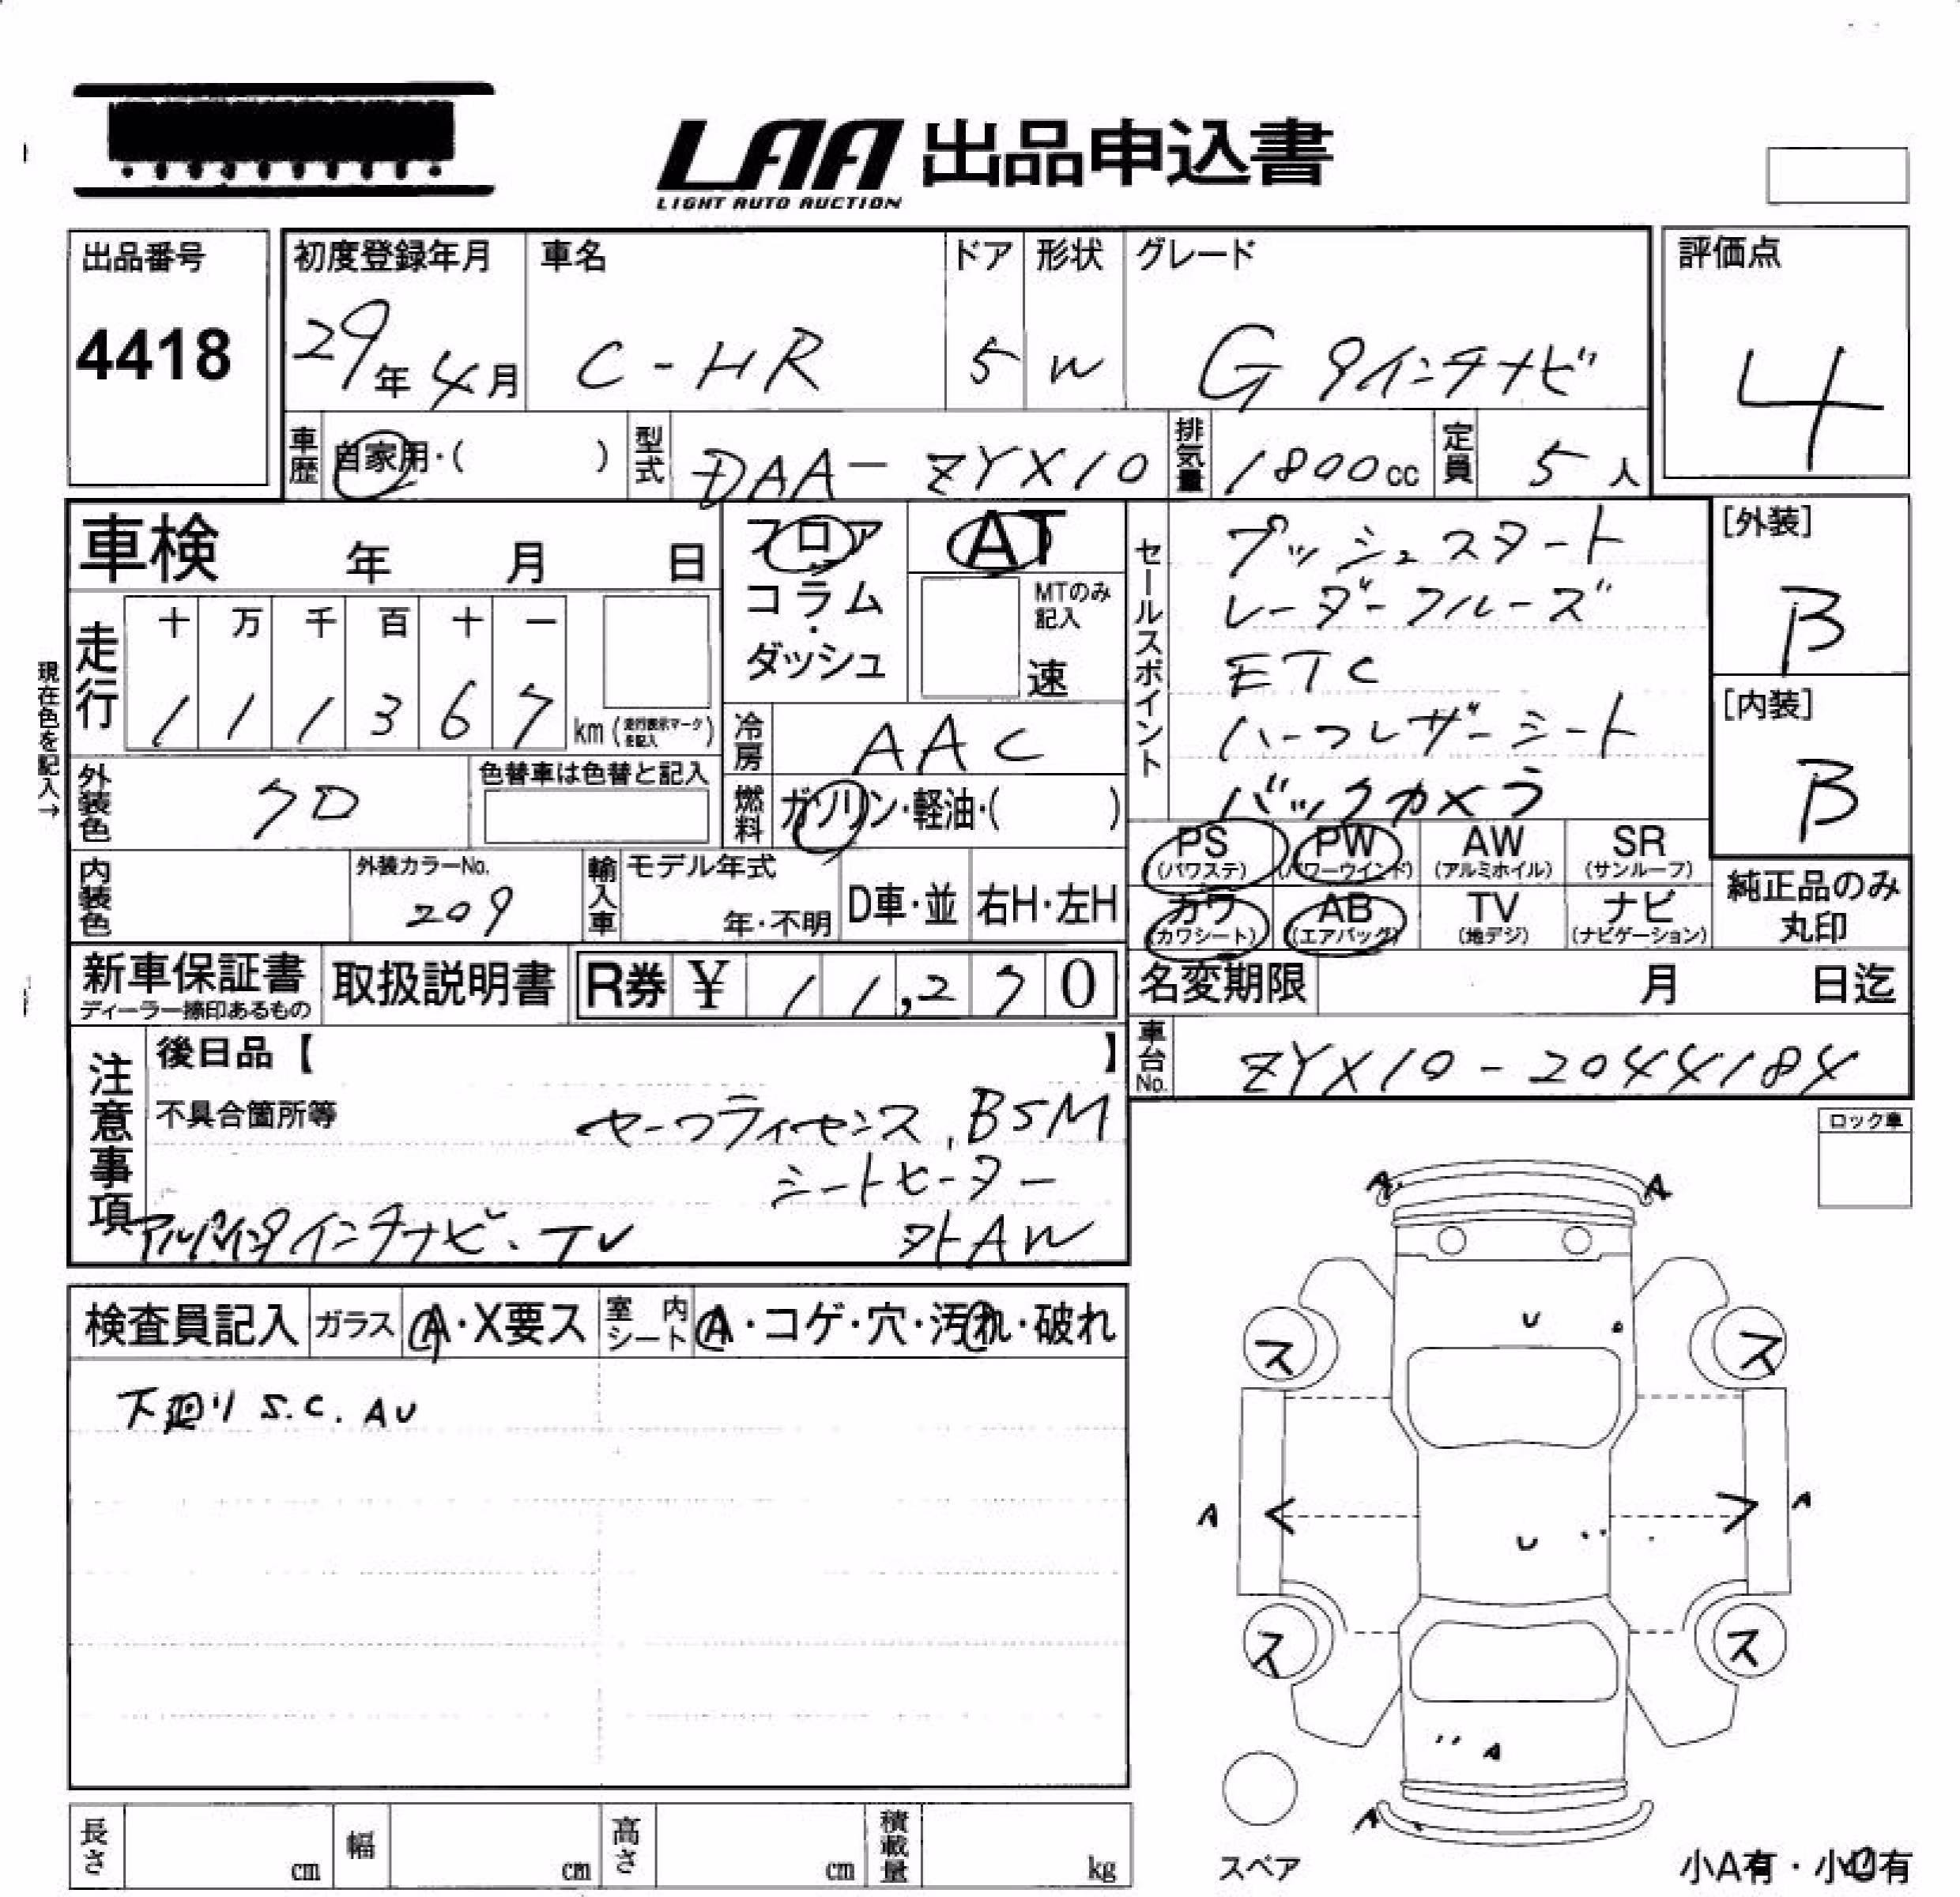 LAA 出品申込書
LIGHT AUTO AUCTION
出品番号
4418
初度登録年月
29年4月
車名
C-HR
ドア
5
形状
W
グレード
G 9インチナビ
評価点
4
車歴
自家用・( )
型式
DAA-ZYX10
排気量
1800cc
定員
5人
車検 年 月 日
フロア
コラム
・
ダッシュ
AT
MTのみ
記入
速
セールスポイント
プッシュスタート
レーダークルーズ
ETC
ハーフレザーシート
バックカメラ
[外装]
B
[内装]
B
現在色を記入→
走行
十 万 千 百 十 一
1 1 1 3 6 7
km (走行表示マークを記入)
冷房
AAC
外装色
クロ
色替車は色替と記入
燃料
ガソリン・軽油・( )
PS
(パワステ)
PW
(パワーウインド)
AW
(アルミホイル)
SR
(サンルーフ)
カワ
(カワシート)
AB
(エアバッグ)
TV
(地デジ)
ナビ
(ナビゲーション)
純正品のみ
丸印
内装色
外装カラーNo.
209
輸入車
モデル年式
年・不明
D車・並
右H・左H
新車保証書
取扱説明書
R券 ¥ 11,270
名変期限 月 日迄
車台No.
ZYX10-2044184
注意事項
後日品【 】
不具合箇所等
セーフティセンス, BSM
シートヒーター
アルパイン9インチナビ・TV
外AW
ロック車
検査員記入
ガラス
A・X要ス
室内
シート
A・コゲ・穴・汚れ・破れ
下廻り S.C. AU
A
A
U
ス
ス
A
A
U
ス
ス
A
A
スペア
小A有・小U有
長さ cm
幅 cm
高さ cm
積載量 kg